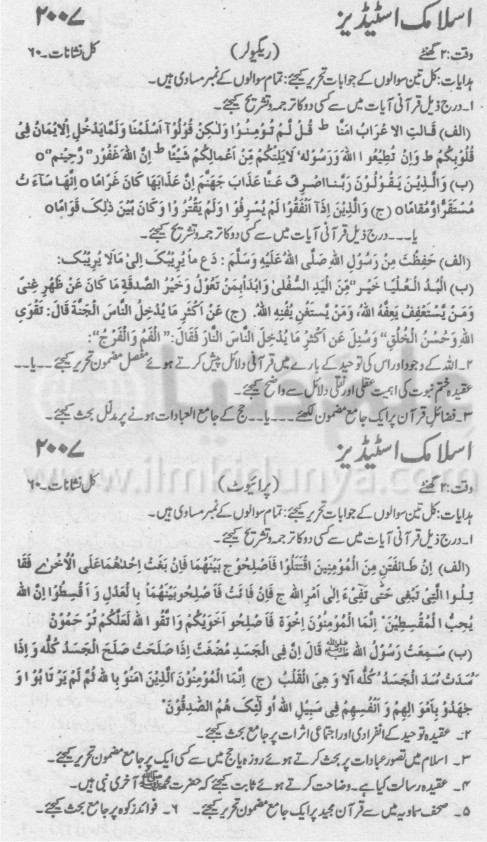 اسلامک اسٹیڈیز ۲۰۰۷
وقت: ۲ گھنٹے (ریگولر) کل نشانات۔۶۰
ہدایات: کل تین سوالوں کے جوابات تحریر کیجئے: تمام سوالوں کے نمبر مساوی ہیں۔
۱۔ درج ذیل قرآنی آیات میں سے کسی دو کا ترجمہ و تشریح کیجئے۔
(الف) قَالَتِ الاَ عْرَابُ امَنَّا ط قُل لَّمْ تُؤمِنُوْا وَلٰکِنْ قُوْلُوْآ اَسْلَمْنَا وَلَمَّا یَدْخُلِ اِلایمَانُ فِی
قُلُوْبِکُمْ ط وَاِنْ تُطِیْعُوا اللهَ وَرَسُوْلَه لَایَلِتْکُمْ مِنْ اَعْمَالِکُمْ شَیْئًا ط اِنَّ اللهَ غَفُوْر’‘ رَّحِیْم’‘o
(ب) وَالَّذِیْنَ یَقُوْلُوْنَ رَبَّنَا اصْرِفْ عَنَّا عَذَابَ جَهَنَّمَ اِنَّ عَذَابَهَا کَانَ غَرَامًا o اِنَّهَا سَآءَ تْ
مُسْتَقَرًّا وَّمُقَامًا o (ج) وَالَّذِیْنَ اِذَآ اَنْفَقُوْا لَمْ یُسْرِفُوْا وَلَمْ یَقْتُرُ وْا وَ کَانَ بَیْنَ ذٰلِکَ قَوَامًا o
یا۔۔۔ درج ذیل قرآنی آیات میں سے کسی دو کا ترجمہ و تشریح کیجئے۔
(الف) حَفِظْتُ مِنْ رَسُوْلِ اللهِ صَلَّی اللهُ عَلَیْهِ وَسَلَّمَ: دَعْ مَا یُرِیْبُکَ اِلٰی مَالَا یُرِیْبُکَ:
(ب) اَلْیَدُ الْعُلْیَا خَیْر’‘ مِّنَ الْیَدِ السُّفْلٰی وَابْدَأبِمَنْ تَعُوْلُ وَخَیْرُ الصَّدَقَةِ مَا کَانَ عَنْ ظَهْرِ غِنًی
وَمَنْ یَّسْتَعْفِفْ یَعِفَّهُ اللهُ، وَمَنْ یَسْتَغْنِ یُغْنِهِ اللهُ. (ج) عَنْ اَکْثَرِ مَا یُدْخِلُ النَّاسَ الْجَنَّةَ قَالَ: تَقْوَی
اللهِ وَحُسْنُ الْخُلْقِ“ وَسُئِلَ عَنْ اَکْثَرِ مَا یُدْخِلُ النَّاسَ النَّارَ فَقَالَ: ”اَلْفَمُ وَالْفَرْجُ“:
۲۔ اللہ کے وجود اور اس کی توحید کے بارے میں قرآنی دلائل پیش کرتے ہوئے مفصل مضمون تحریر کیجئے۔۔یا۔۔
عقیدہ ختم نبوت کی اہمیت عقلی اور نقلی دلائل سے واضح کیجئے۔
۳۔ فضائل قرآن پر ایک جامع مضمون لکھئے۔۔۔یا۔۔ حج کے جامع العبادات ہونے پر مدلل بحث کیجئے۔
اسلامک اسٹیڈیز ۲۰۰۷
وقت: ۲ گھنٹے (پرائیوٹ) کل نشانات۔۶۰
www.ilmkidunya.com
ہدایات: کل تین سوالوں کے جوابات تحریر کیجئے: تمام سوالوں کے نمبر مساوی ہیں۔
۱۔ درج ذیل قرآنی آیات میں سے کسی دو کا ترجمہ و تشریح کیجئے۔
(الف) اِنْ طَائفَتٰنِ مِنَ الْمُؤمِنِیْنَ اقْتَتَلُوْا فَاَصْلِحُوْ ج بَیْنَهُمَا فَاِنْ بَغَتْ اِحْدٰهُمَا عَلَی الْاُخْرٰے فَقَا
تِلُوا الَّتِیْ تَبْغِی حَتّٰی تَفِیْءَ اِلٰی اَمْرِ اللهِ ج فَاِنْ فَائَتْ فَاَصْلِحُوْبَیْنَهُمَا بِالْعَدْلِ وَ اَقْسِطُوْا اِنَّ اللهَ
یُحِبُّ الْمُقْسِطِیْنَ ۔ اِنَّمَا الْمُؤمِنُوْنَ اِخْوَة فَاَصْلِحُوْ اَخَوَیْکُمْ وَاتَّقُو اللهَ لَعَلَّکُمْ تُرْ حَمُوْنَ
(ب) سَمِعْتُ رَسُوْلَ اللهِ ﷺ قَالَ اِنَّ فِی الْجَسَدِ مُضْغَتُ اِذَا صَلَحَتْ صَلَحَ الْجَسَدُ کُلُّه وَاِذَا
فَسَدَتْ فَسَدَ الْجَسَدُ کُلُّه اَلَا وَ هِیَ الْقَلْبُ (ج) اِنَّمَا الْمُؤمِنُوْنَ الَّذِیْنَ امَنُوْ بِا للهِ ثُمَّ لَمْ یَرْ تَابُوْا وَ
جٰهَدُوْ بِاَمْوَا لِهِمْ وَ اَنْفُسِهِمْ فِی سَبِیْلِ اللهِ اُولٰٓئِکَ هُمُ الصّٰدِقُوْنَ
۲۔ عقیدہ توحید کے انفرادی اور اجتماعی اثرات پر جامع بحث کیجئے۔
۳۔ اسلام میں تصور عبادات پر بحث کرتے ہوئے روزہ یا حج میں سے کسی ایک پر جامع مضمون تحریر کیجئے۔
۴۔ عقیدہ رسالت کیا ہے۔ وضاحت کرتے ہوئے ثابت کیجئے کہ حضرت محمد ﷺ آخری نبی ہیں۔
۵۔ صحف سماویہ میں سے قرآن مجید پر ایک جامع مضمون تحریر کیجئے۔ ۶۔ فوائد زکوہ پر جامع بحث کیجئے۔